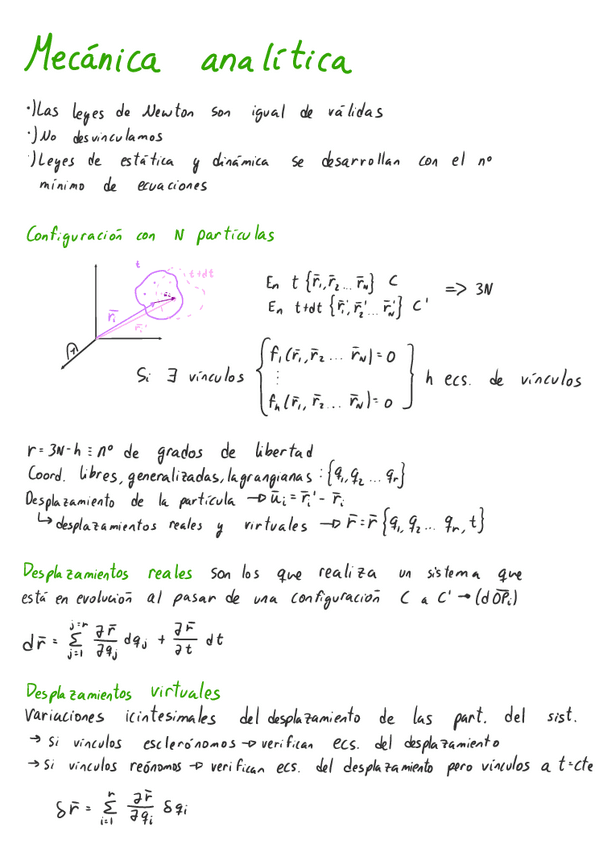 Mecánica analítica
·)Las leyes de Newton son igual de válidas
·)No desvinculamos
·)Leyes de estática y dinámica se desarrollan con el nº
mínimo de ecuaciones
Configuración con N partículas
t
t+dt
r̄ᵢ
r̄ᵢ'
En t {r̄₁,r̄₂...r̄_N} C => 3N
En t+dt {r̄₁',r̄₂'...r̄_N'} C'
Si ∃ vínculos { f₁(r̄₁,r̄₂...r̄_N)=0
⋮
f_h(r̄₁,r̄₂...r̄_N)=0 } h ecs. de vínculos
r=3N-h ≡ nº de grados de libertad
Coord. libres, generalizadas, lagrangianas : {q₁,q₂...qᵣ}
Desplazamiento de la partícula → ūᵢ=r̄ᵢ'-r̄ᵢ
↳ desplazamientos reales y virtuales → r̄=r̄{q₁,q₂...qᵣ,t}
Desplazamientos reales son los que realiza un sistema que
está en evolución al pasar de una configuración C a C' → (dO̅P̅ᵢ)
dr̄ = Σ_{j=1}^{j=r} ∂r̄/∂qⱼ dqⱼ + ∂r̄/∂t dt
Desplazamientos virtuales
Variaciones icintesimales del desplazamiento de las part. del sist.
→ Si vínculos esclerónomos → verifican ecs. del desplazamiento
→ Si vínculos reónomos → verifican ecs. del desplazamiento pero vínculos a t=cte
δr̄ = Σ_{i=1}^{r} ∂r̄/∂qᵢ δqᵢ